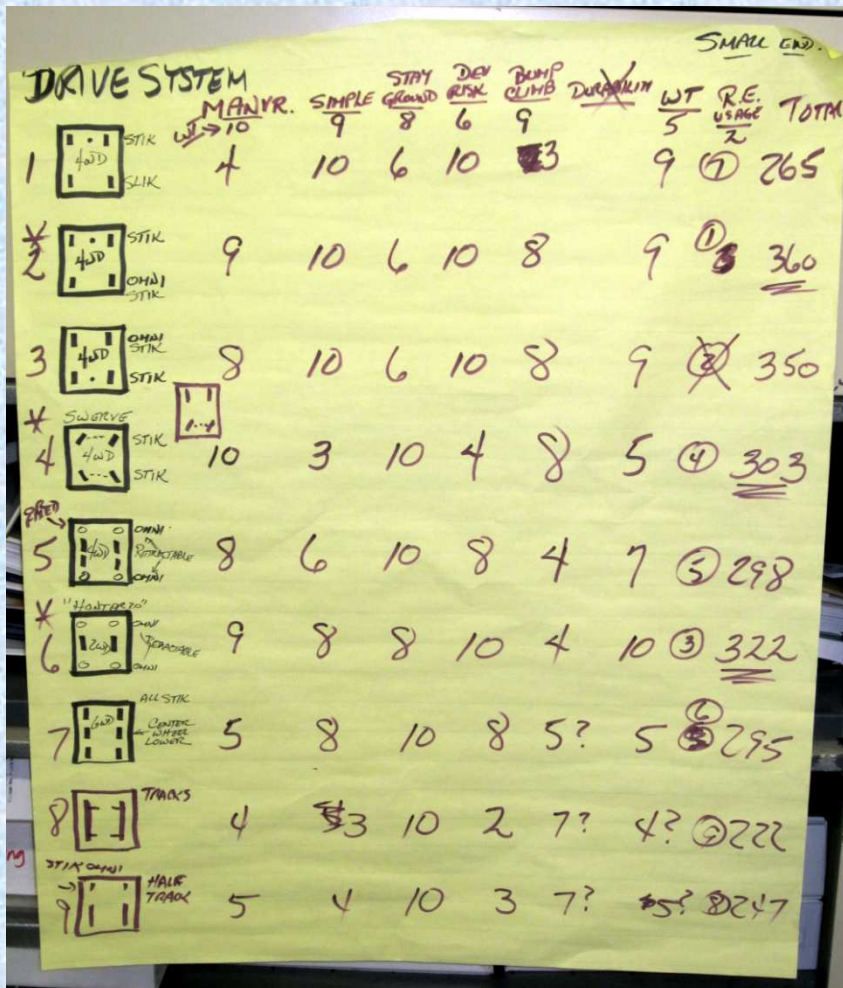 SMALL END.
DRIVE SYSTEM
MANVR. SIMPLE STAY GROUND DEV RISK BUMP CLIMB WT R.E. USAGE TOTAL
WT → 10 9 8 6 9 5 2
1 4WD STIK SLIK 4 10 6 10 3 9 7 265
* 2 4WD STIK OMNI STIK 9 10 6 10 8 9 1 360
3 4WD OMNI STIK STIK 8 10 6 10 8 9 2 350
SWERVE
* 4 4WD STIK STIK 10 3 10 4 8 5 4 303
5 4WD OMNI RETRACTABLE OMNI 8 6 10 8 4 7 5 298
* 6 2WD OMNI RETRACTABLE OMNI 9 8 8 10 4 10 3 322
ALL STIK
7 6WD CENTER WHEEL LOWER 5 8 10 8 5? 5 6 295
8 TRACKS 4 3 10 2 7? 4? 9 222
STIK OMNI
9 HALF TRACK 5 4 10 3 7? 5? 8 247